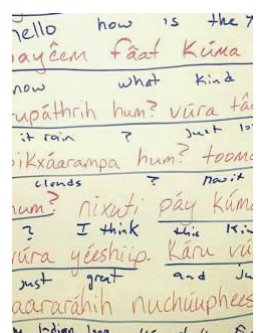 hello how is the
ayêem fâat Kúma
now what kind
upáthrih hum? vúra tâ
it rain ? just
ikxáarampa hum? toom
clouds ? now it
hum? nixuti páy kúm
? I think this kin
vúra yéeshiip. Káru vú
just great and Ju
aararáhih nuchúuphees
Indian